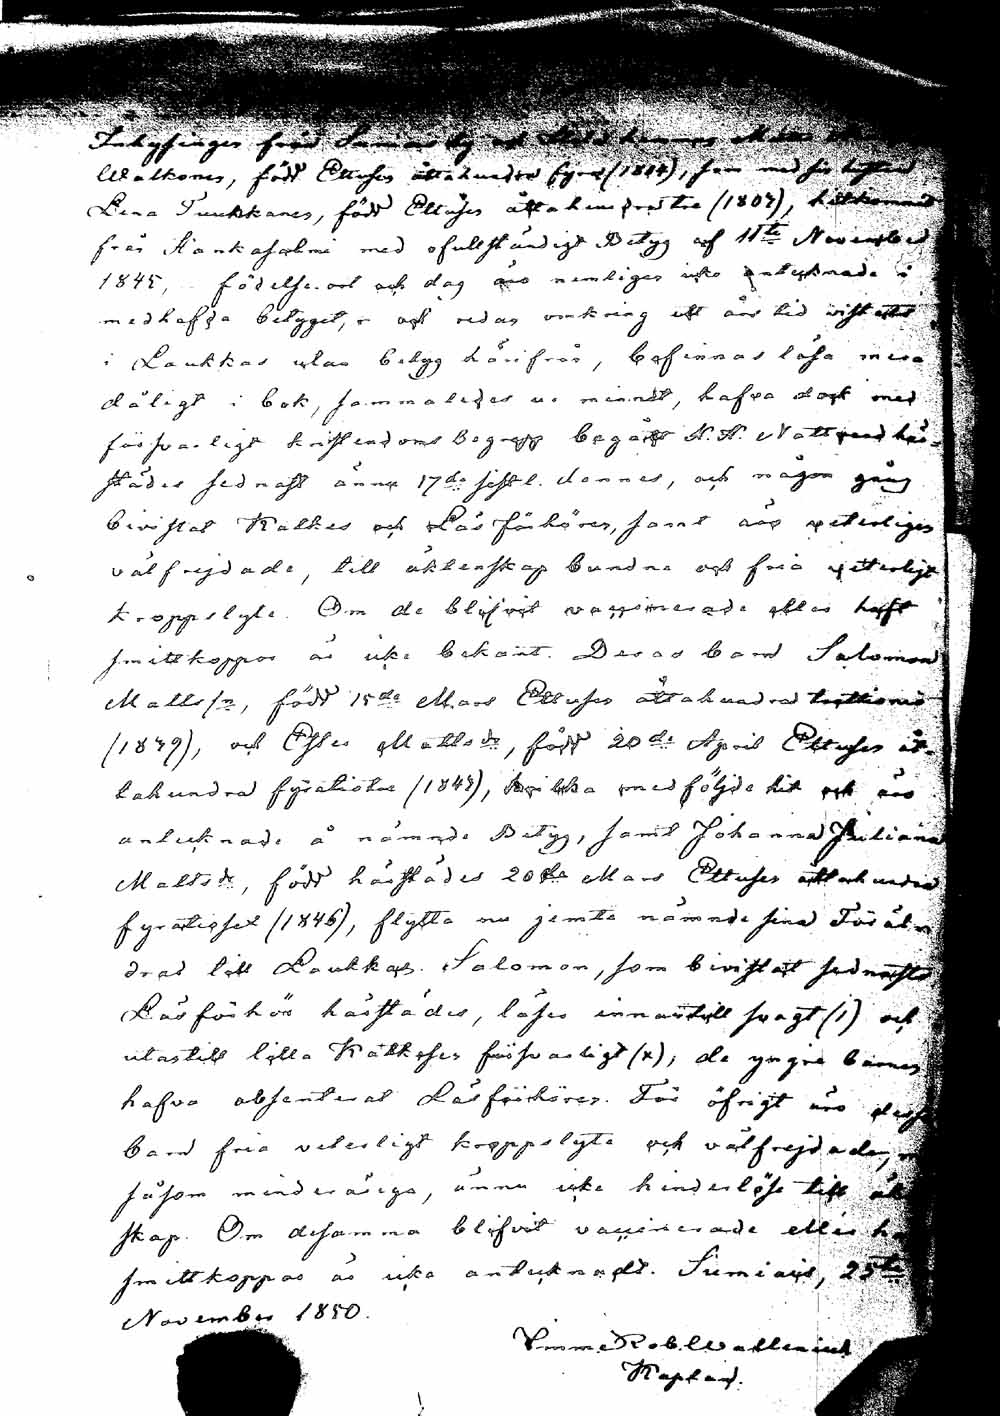 Inhysingen från Sumias by och
Walkonen, född Ettusen åttahundra fyra (1804), som med sin hustru
Lena Tuukkanen, född Ettusen åttahundratre (1803), hitkommit
från Kankasalmi med ofullständigt Betyg af 11te November
1845, födelse ort och dag äro nemligen icke antecknade i
medhafda betyget, och redan omkring ett års tid vistats
i Laukkas utan betyg härifrån, befinnas läsa mera
dåligt i bok, sammaledes ur minnet, hafva dock med
försvarligt kristendoms Begrepp begått H. H. Nattvard här-
städes sednast ännu 17de sistl. dennes, och någon gång
bivistat Kathes och Läsförhören, samt äro veterligen
välfrejdade, till äktenskap bundna och fria veterligt
kroppslyte. Om de blifvit vaccinerade eller haft
smittkoppor är icke bekant. Deras barn Salomon
Matts/n, född 15de Mars Ettusen åttahundra trettionio
(1839), och Ester Mattsdr, född 20de April Ettusen åt-
tahundra fyratiotre (1843), hvilka medföljde hit och äro
antecknade å nämnde Betyg, samt Johanna Juliana
Mattsdr, född härstädes 20de Mars Ettusen åttahundra
fyratiosex (1846), flytta nu jemte nämnde sina Föräl-
drar till Laukkas. Salomon, som bivistat sednaste
Läsförhör härstädes, läser innantill svagt (i) och
utantill lilla Kathesen försvarligt (x), de yngre barnen
hafva absenterat Läsförhören. För öfrigt äro desse
barn fria veterligt kroppslyte och välfrejdade,
såsom minderåriga, ännu icke hinderlöse till äk
skap. Om desamma blifvit vaccinerade eller ha
smittkoppor är icke antecknadt. Sumiais, 25te
November 1850.
Vimme Rob. Wallenius
Kaplan.